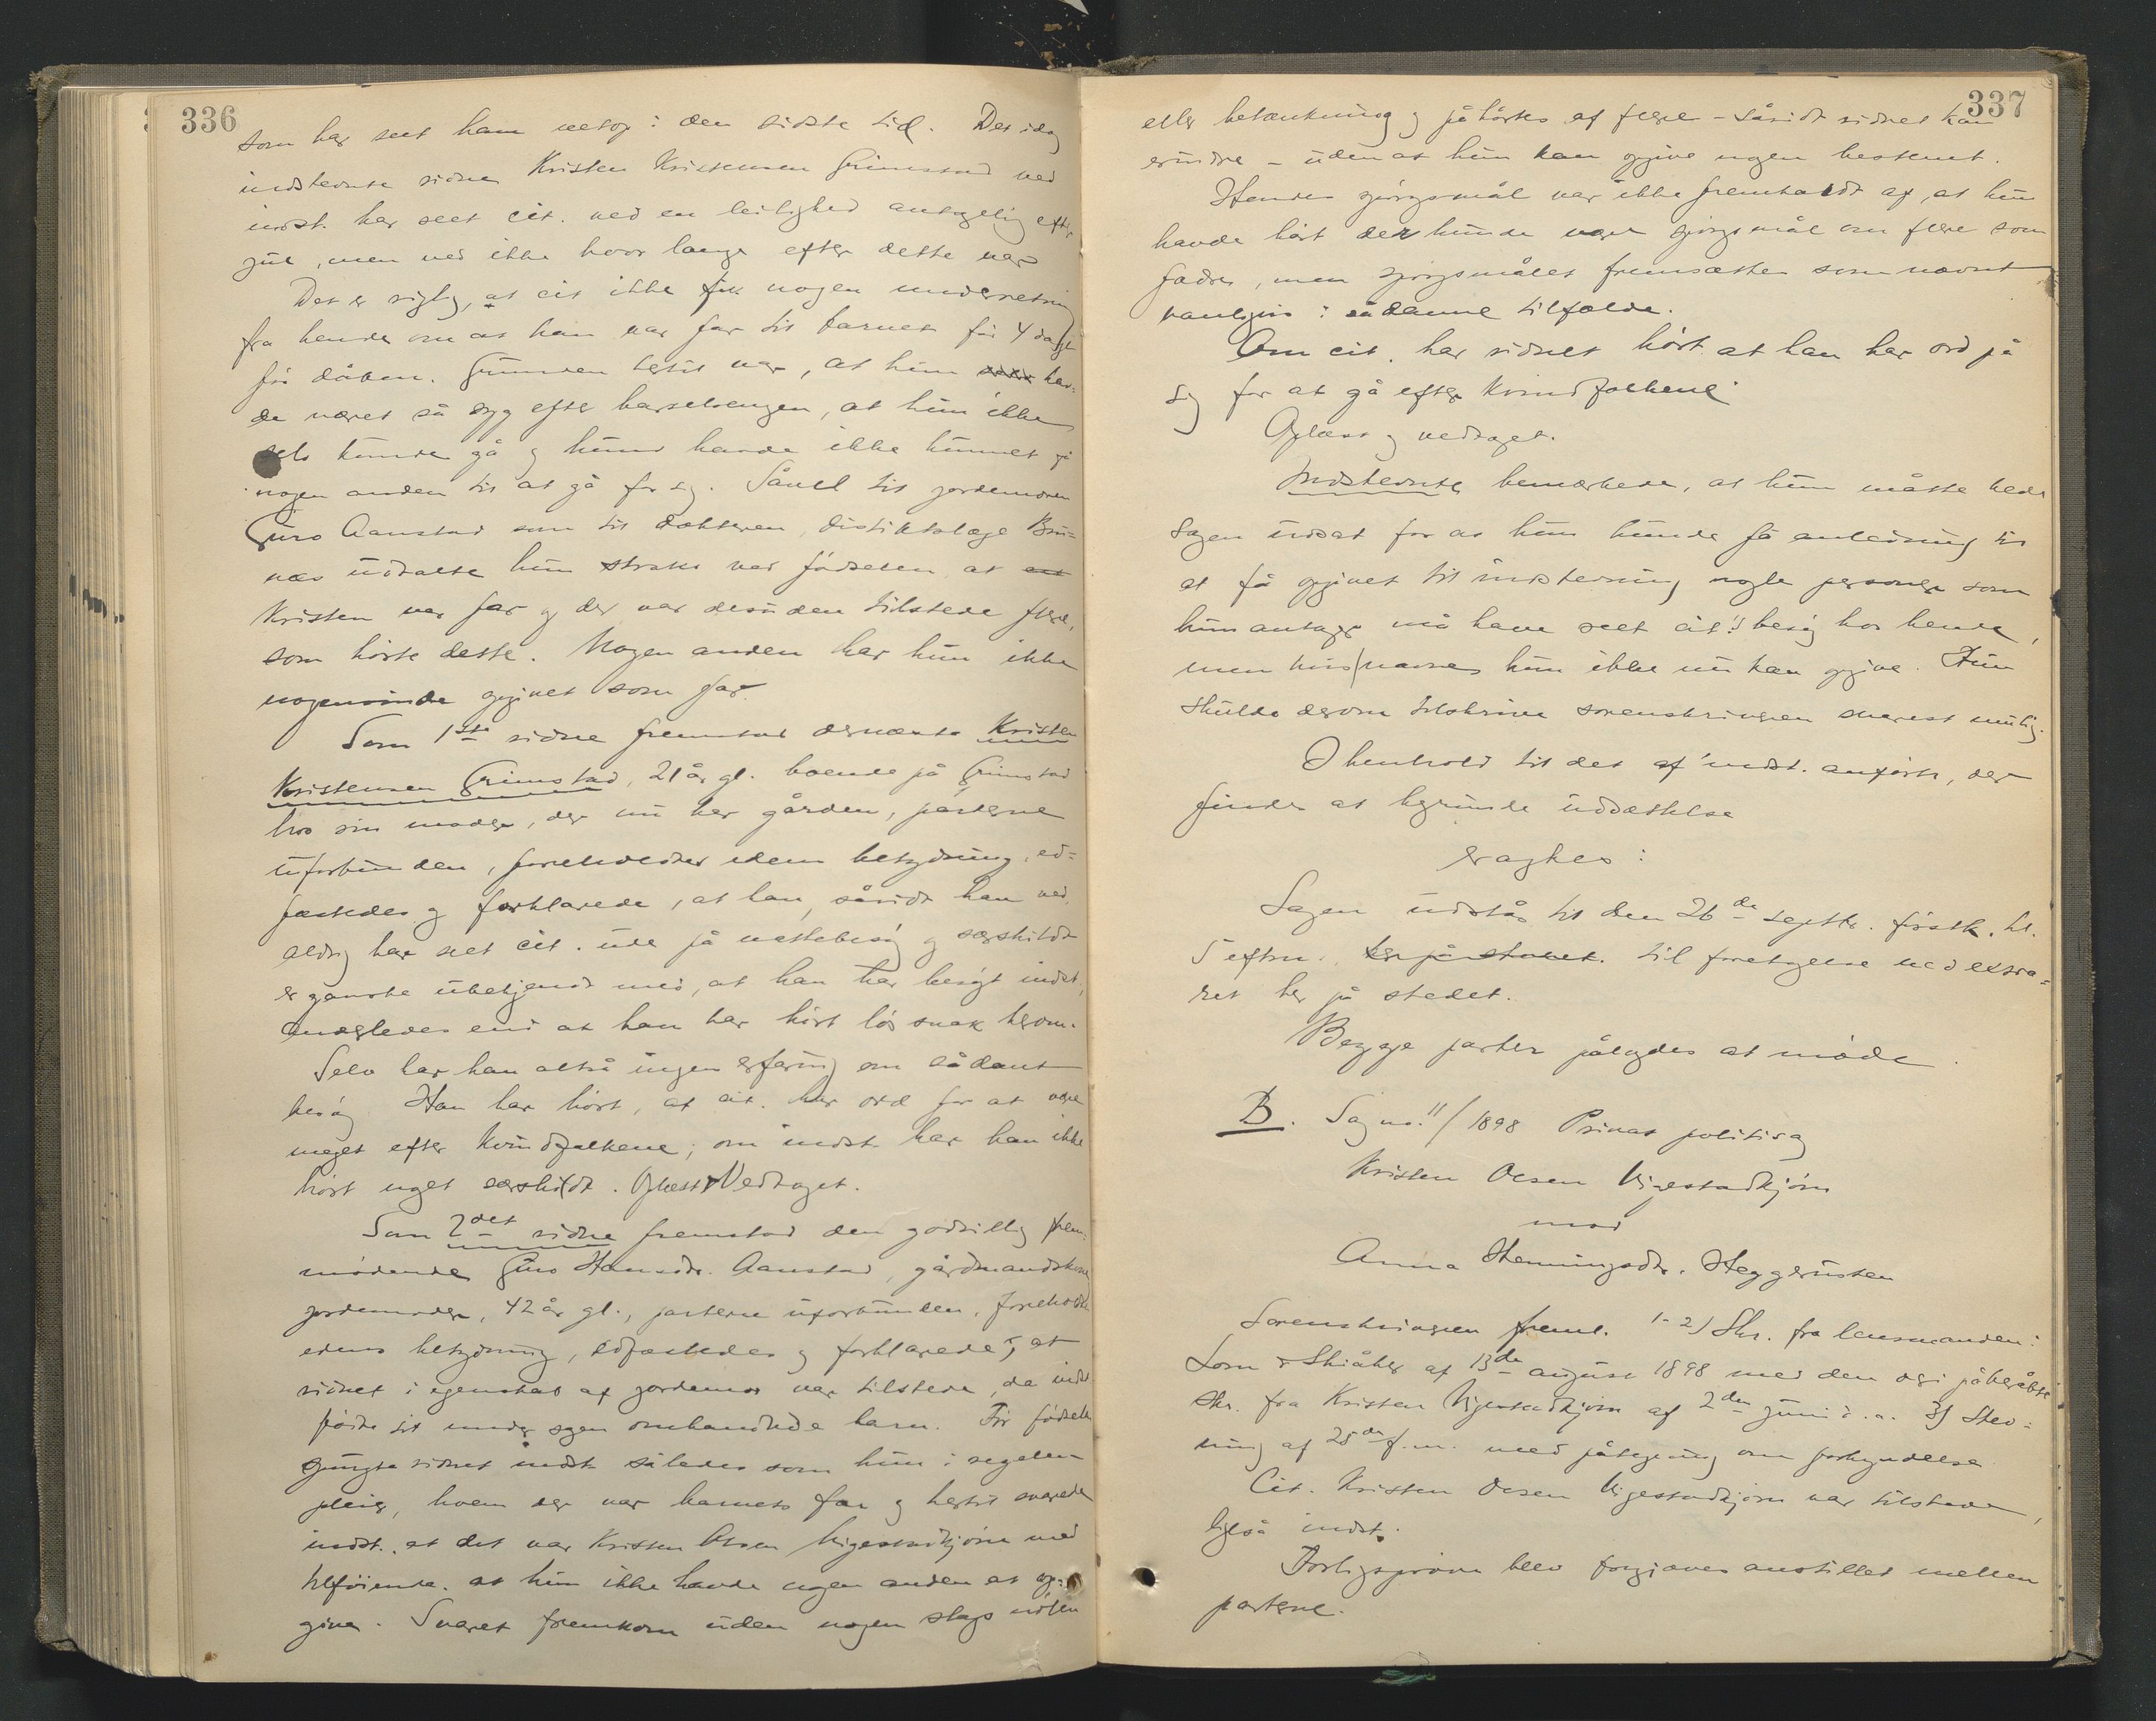 336
som har seet ham netop i den sidste tid. Det idag
indstevnte vidne Kristen Kristensen Grimstad ved
indst. har seet cit. ved en leilighed antagelig efter
jul, men ved ikke hvor længe efter dette var
Det er rigtig, at cit ikke fik nogen underretning
fra hende om at han var far til barnet før 4 dage
før dåben. Grunden hertil var, at hun hav-
de været så syg efter barselsengen, at hun ikke
selv kunde gå og hun havde ikke kunnet få
nogen anden til at gå for sig. Såvel til jordemoren
Guro Aanstad som til doktoren, distriktslæge
udtalte hun straks ved fødselen at
Kristen var far og der var desuden tilstede flere,
som hørte dette. Nogen anden har hun ikke
nogensinde opgivet som far
Som 1ste vidne fremstod dernæst Kristen
Kristensen Grimstad, 21 år gl. boende på Grimstad
hos sin moder, der nu har gården, parterne
uforbunden, foreholdtes edens betydning, ed-
fæstedes og forklarede, at han, såvidt han ved,
aldrig har seet cit. ude på nattebesøg og særskildt
er ganske ubekjendt med, at han har besøgt indst.,
anderledes end at han har hørt løs snak herom.
Selv har han altså ingen erfaring om sådant
besøg Han har hørt, at cit. har ord for at være
meget efter kvindfolkene; om indst har han ikke
hørt noget særskildt. Oplæst Vedtaget.
Som 2det vidne fremstod den godvillig frem-
mødende Guro Hansdtr. Aanstad, gårdmandskone
jordemoder, 42 år gl., parterne uforbunden, foreholdtes
edens betydning, edfæstedes og forklarede, at
vidnet i egenskab af jordemor var tilstede, da indst
fødte sit under sagen omhandlede barn. Før fødselen
spurgte vidnet indst således som hun i regelen
pleier, hvem der var barnets far og hertil svarede
indst. at det var Kristen Olsen Vigestadkjørn med
tilføiende, at hun ikke havde nogen anden at op-
give. Svaret fremkom uden nogen slags nølen
337
eller betænkning og påhørtes af flere - såvidt vidnet kan
erindre - uden at hun kan opgive nogen bestemt.
Hendes spørgsmål var ikke fremkaldt af, at hun
havde hørt der kunde være spørgsmål om flere som
fædre, men spørgsmålet fremsattes som nævnt
vanligvis i sådanne tilfælde.
Om cit. har vidnet hørt at han har ord på
sig for at gå efter kvindfolkene
Oplæst og vedtaget.
Indstevnte bemærkede, at hun måtte bede
sagen udsat for at hun kunde få anledning til
at få opgivet til indstevning nogle personer som
hun antager må have seet cit's besøg hos hende,
men hvis navne hun ikke nu kan opgive. Hun
skulde derom tilskrive sorenskriveren snarest mulig.
I henhold til det af indst. anførte, der
findes at begrunde udsættelse
eragtes:
Sagen udstår til den 26de septbr. førstk. kl.
5 efterm. her på stedet. til foretagelse ved extra-
ret her på stedet.
Begge parter pålagdes at møde.
B. Sag no. 11/1898 Privat politisag
Kristen Olsen Vigestadkjørn
mod
Anna Henningsdtr. Heggerusten
Sorenskriveren freml. 1-2) Skr. fra lensmanden i
Lom & Skiåker af 13de august 1898 med den deri påberåbte
Skr. fra Kristen Vigestadkjørn af 2den juni d. a. 3) Stev-
ning af 25de f. m. med påtegning om forkyndelse
Cit. Kristen Olsen Vigestadkjørn var tilstede,
ligeså indst.
Forligsprøve blev forgjæves anstillet mellem
parterne.